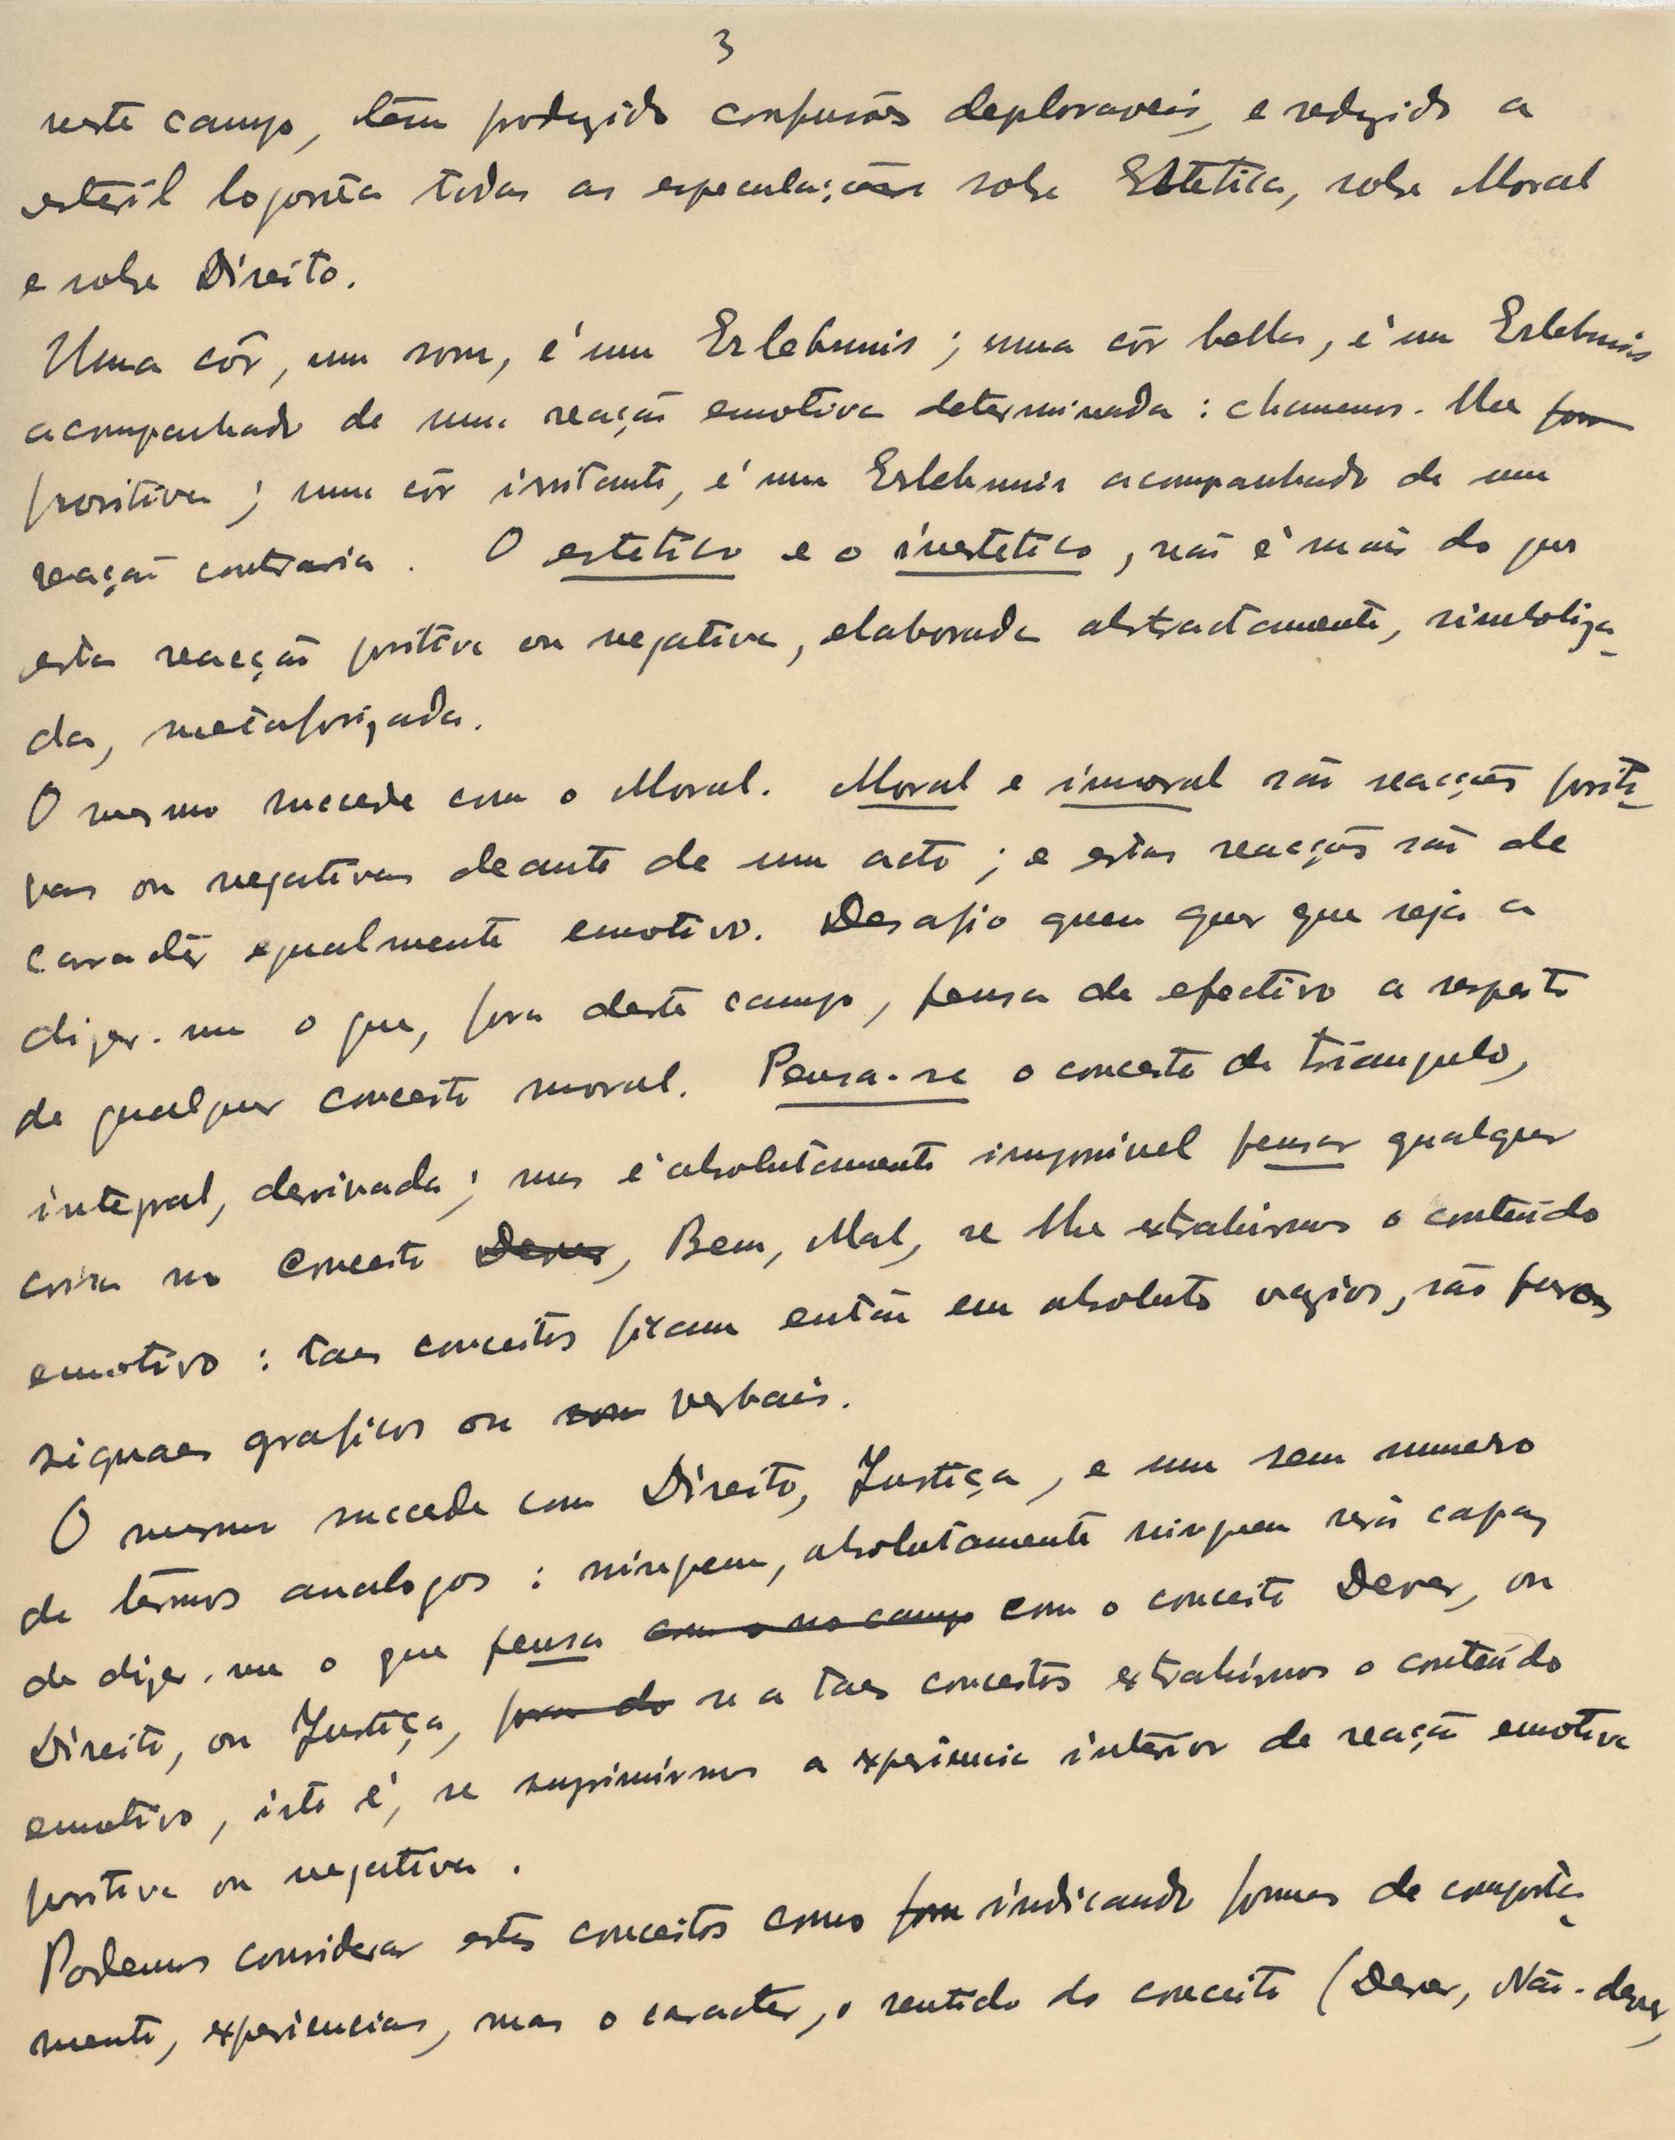 3
neste campo, têm produzido confusões deploraveis, e reduzido a
esteril logorréa todas as especulações sobre Estetica, sobre Moral
e sobre Direito.
Uma côr, um som, é um Erlebnnis; uma côr bella, é um Erlebnnis
acompanhado de uma reação emotiva determinada: chamemos-lhe
positiva; uma côr irritante, é um Erlebnnis acompanhado de uma
reação contraria. O estetico e o inestetico, não é mais do que
esta reacção positiva ou negativa, elaborada abstractamente, simboliza-
da, metaforizada.
O mesmo succede com o Moral. Moral e immoral são reacções positi-
vas ou negativas deante de um acto; e estas reacções são de
caracter egualmente emotivo. Desafio quem quer que seja a
dizer-me o que, fora deste campo, pensa de efectivo a respeito
de qualquer conceito moral. Pensa-se o conceito de triangulo,
integral, derivada; mas é absolutamente impossivel pensar qualquer
coisa no conceito Dever, Bem, Mal, se lhe extrahirmos o conteúdo
emotivo: taes conceitos ficam então em absoluto vazios, são puros
signaes graficos ou verbais.
O mesmo succede com Direito, Justiça, e um sem numero
de termos analogos: ninguem, absolutamente ninguem será capaz
de dizer-me o que pensa com o no campo com o conceito Dever, ou
Direito, ou Justiça, fora do se a taes conceitos extrahirmos o conteúdo
emotivo, isto é, se suprimirmos a experiencia interior de reação emotiva
positiva ou negativa.
Podemos considerar estes conceitos como form indicando formas de comporta-
mento, experiencias, mas o caracter, o sentido do conceito (Dever, Não-dever,